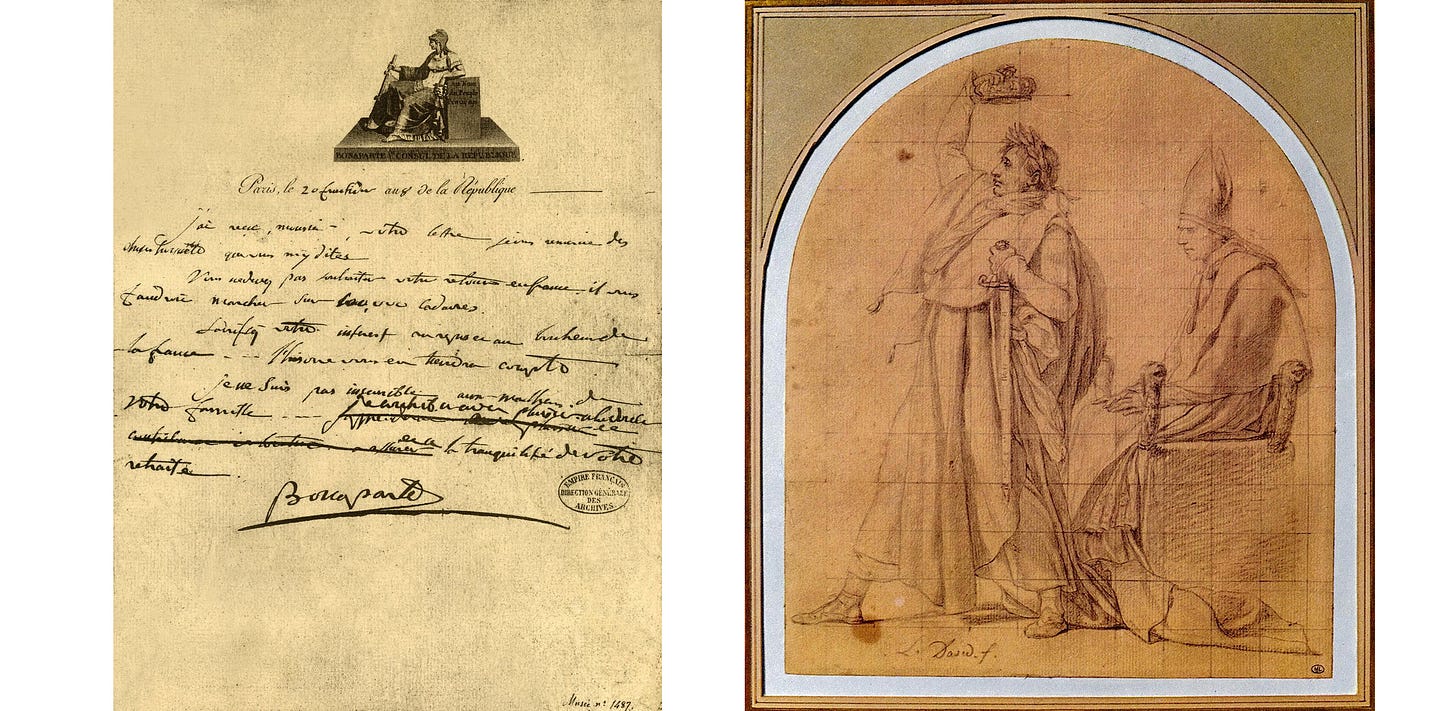 Au Nom
du Peuple
Français
BONAPARTE 1er CONSUL DE LA RÉPUBLIQUE
Paris, le 20 fructidor an 8 de la République
j'ai reçu, monsieur, votre lettre je vous remercie des
que vous my dites
Vous ne devez pas souhaiter votre retour en france il vous
faudroit marcher sur cadavres
Sacrifiez votre interest au repos et au bonheur de
la france - - - l'histoire vous en tiendra compte
Je ne suis pas insensible aux malheurs de
votre famille - - -
la tranquilité de votre
retraite
Bonaparte
EMPIRE FRANÇAIS
DIRECTION GÉNÉRALE
DES
ARCHIVES
Musée nº 1487.
L. David. f.
ML